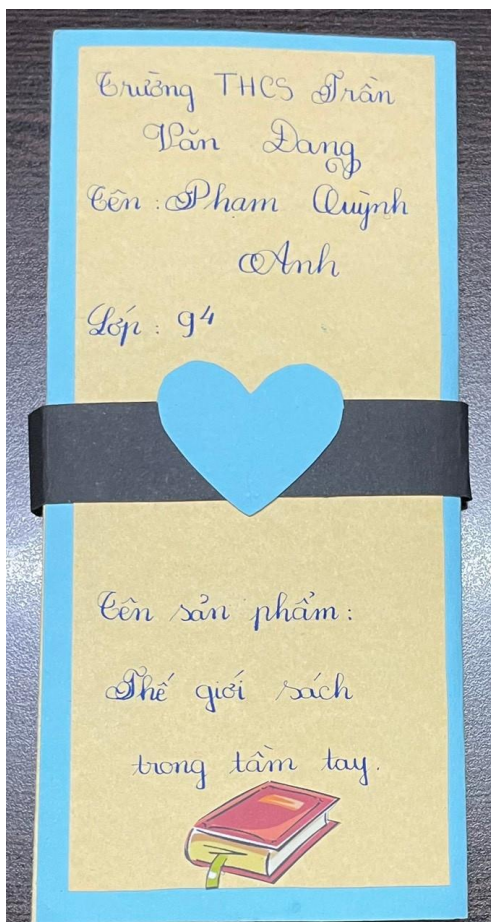 Trường THCS Trần
Văn Đang
Tên : Phạm Quỳnh
Anh
Lớp : 9⁴
Tên sản phẩm :
Thế giới sách
trong tầm tay.